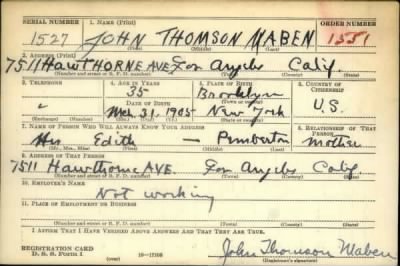 SERIAL NUMBER 1. NAME (Print) ORDER NUMBER
1527 JOHN THOMSON MABEN 1551
(First) (Middle) (Last)
2. ADDRESS (Print)
7511 HAWTHORNE AVE Los Angeles Calif.
(Number and street or R. F. D. number) (Town) (County) (State)
3. TELEPHONE 4. AGE IN YEARS 5. PLACE OF BIRTH 6. COUNTRY OF CITIZENSHIP
35 Brooklyn
DATE OF BIRTH (Town or county) U.S.
Mch. 31, 1905 New York
(Exchange) (Number) (Mo.) (Day) (Yr.) (State or country)
7. NAME OF PERSON WHO WILL ALWAYS KNOW YOUR ADDRESS 8. RELATIONSHIP OF THAT PERSON
Edith — Pemberton Mother
(Mr., Mrs., Miss) (First) (Middle) (Last)
9. ADDRESS OF THAT PERSON
7511 Hawthorne AVE. Los Angeles Calif.
(Number and street or R. F. D. number) (Town) (County) (State)
10. EMPLOYER'S NAME
Not working
11. PLACE OF EMPLOYMENT OR BUSINESS
(Number and street or R. F. D. number) (Town) (County) (State)
I AFFIRM THAT I HAVE VERIFIED ABOVE ANSWERS AND THAT THEY ARE TRUE.
REGISTRATION CARD
D. S. S. Form 1 (over) 16—17105 John Thomson Maben
(Registrant's signature)